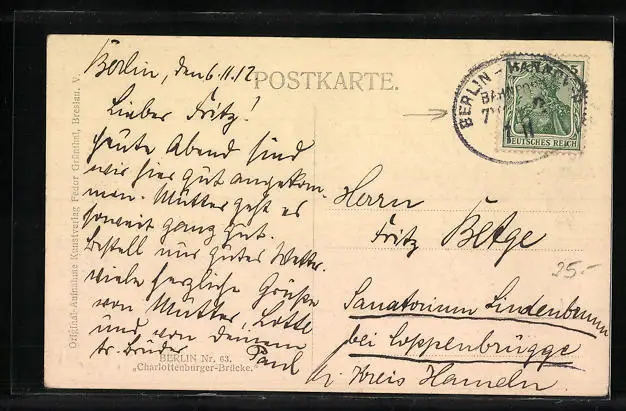 Berlin, den 6.11.12
POSTKARTE.
Lieber Fritz!
Heute Abend sind
wir hier gut angekom-
men. Mutter geht es
soweit ganz gut.
Bestell nur gutes Wetter.
Viele herzliche Grüße
von Mutter, Lotte
und von deinem
tr. Bruder Paul
BERLIN Nr. 63.
„Charlottenburger-Brücke."
Original-Aufnahme Kunstverlag Fedor Grünthal, Breslau. V.
BERLIN - HANNOVER
BAHNPOST
DEUTSCHES REICH
Herrn
Fritz Betge
25.-
Sanatorium Lindenbrunn
bei Coppenbrügge
i/ Kreis Hameln.